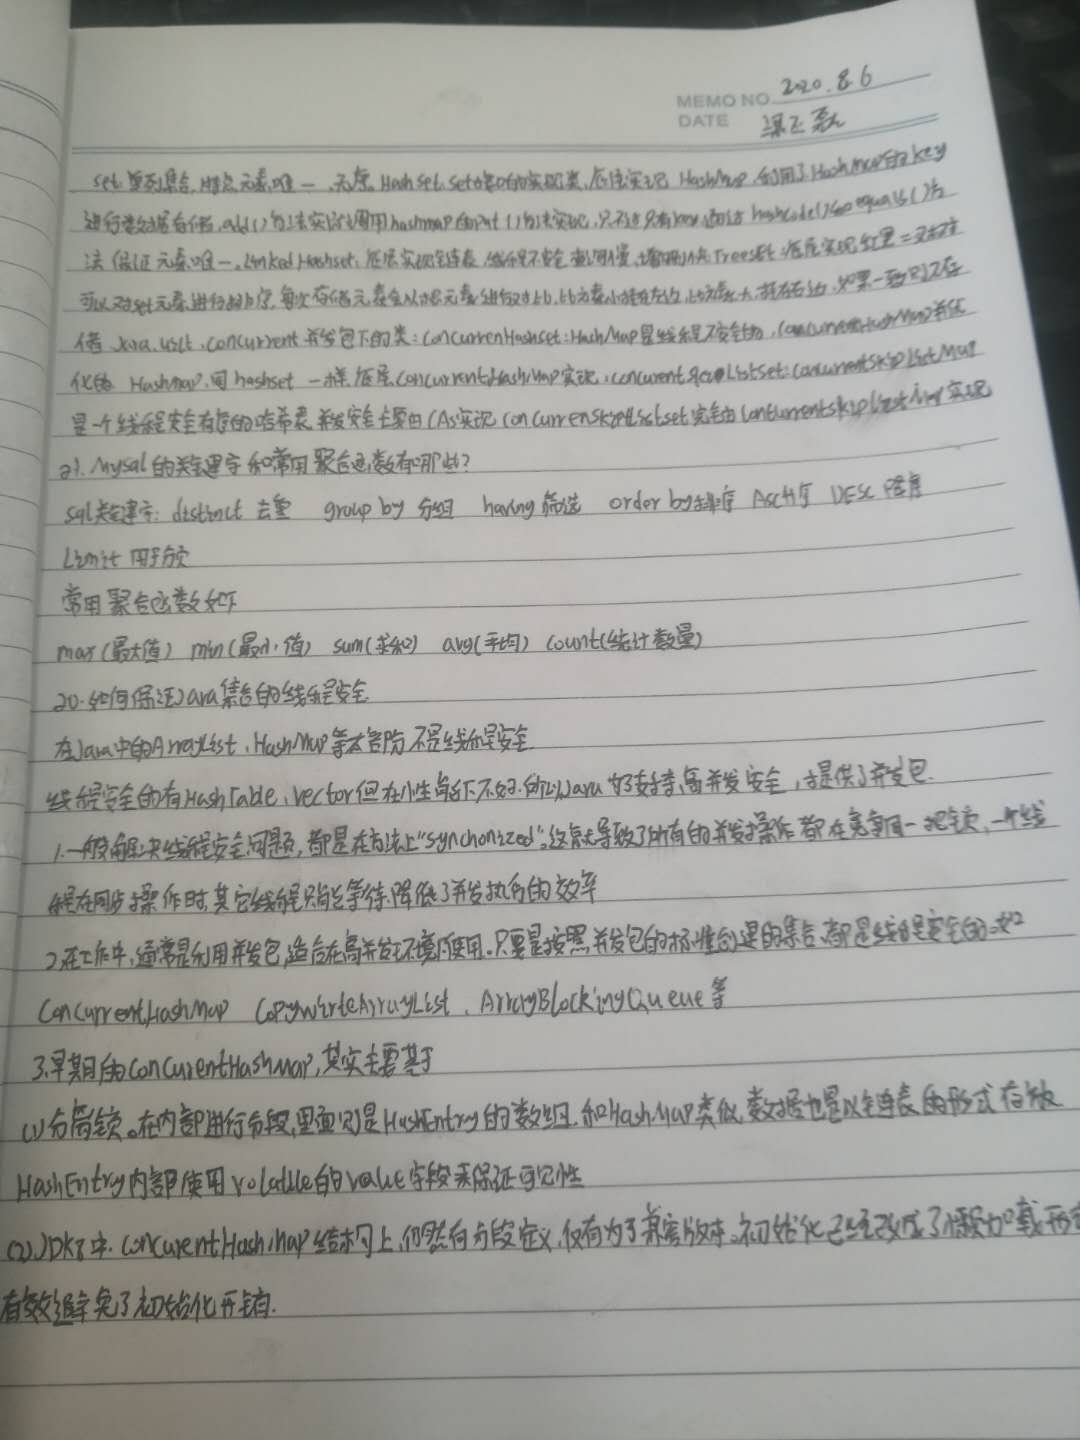 MEMO NO. 2020.8.6
DATE
set 单列集合,特点元素唯一,无序 Hash set set的实现类,底层实现 HashMap,利用了HashMap的key
进行数据存储,add()方法实际调用hashmap的put()方法实现,只不过只有key,通过 hashcode() equals()方
法保证元素唯一。Linked Hashset:底层实现链表,线程不安全 查询慢,增删快 TreeSet:底层实现 红黑二叉树
可以对set元素进行排序,每次存储元素会从根元素进行对比,比元素小挂在左边,比元素大,挂在右边,如果一致则不存
储 Java.util.concurrent 并发包下的类:ConcurrenHashset:HashMap是线程不安全的,ConcurrentHashMap
化的 Hashmap,同 hashset 一样 底层ConcurrentHashMap实现,ConcurentSkipListSet:ConcurrentSkipListMap
是一个线程安全有序的哈希表 并发安全主要由CAS实现 ConcurrenSkipListset完全由ConcurrentskiplistMap实现
21.Mysql的关键字和常用聚合函数有哪些?
sql关键字: distinct 去重 group by 分组 having 筛选 order by 排序 ASC升序 DESC 降序
Limit 用于分页
常用聚合函数如下
max(最大值) min(最小值) sum(求和) avg(平均) count(统计数量)
20.如何保证Java集合的线程安全
在Java中的ArrayList,HashMap等大部分不是线程安全
线程安全的有HashTable,vector但在性能下不好.所以Java为了提高并发安全,才提供了并发包.
1.一般解决线程安全问题,都是在方法上"Synchonized",这就导致了所有的并发操作都在竞争同一把锁,一个线
程在同步操作时,其它线程只能等待,降低了并发执行的效率
2.在工作中,通常是利用并发包,适合在高并发环境下使用。只要是按照并发包的标准创建的集合,都是线程安全的。如
ConcurrentHashMap CopyWirteArrayList、ArrayBlockingQueue等
3.早期的ConcurentHashMap,其实主要基于
(1)分离锁。在内部进行分段,里面则是HashEntry的数组,和HashMap类似,数据也是以链表的形式存放
HashEntry内部使用volatile的value字段来保证可见性
(2)JDK8中,ConcurentHashMap结构上,仍然有分段定义,仅有为了兼容版本。初始化已经改成了懒加载形式
有效避免了初始化开销.